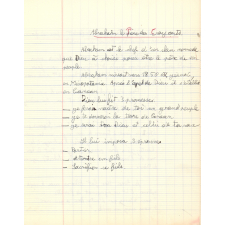 Abraham le Père des Croyants
Abraham est le chef d'un clan nomade
que Dieu a choisi pour être le père de son
peuple.
Abraham vivait vers 1850
en Mésopotamie après l'appel de Dieu il s'
en Canaan
Dieu lui fait 3 promesses
— je ferai de toi un grand peuple
— je donnerai la terre de Canaan
— je serai ton Dieu et celui de ta race
Il lui impose 3 épreuves
— Partir
— attendre un fils
— Sacrifier ce fils